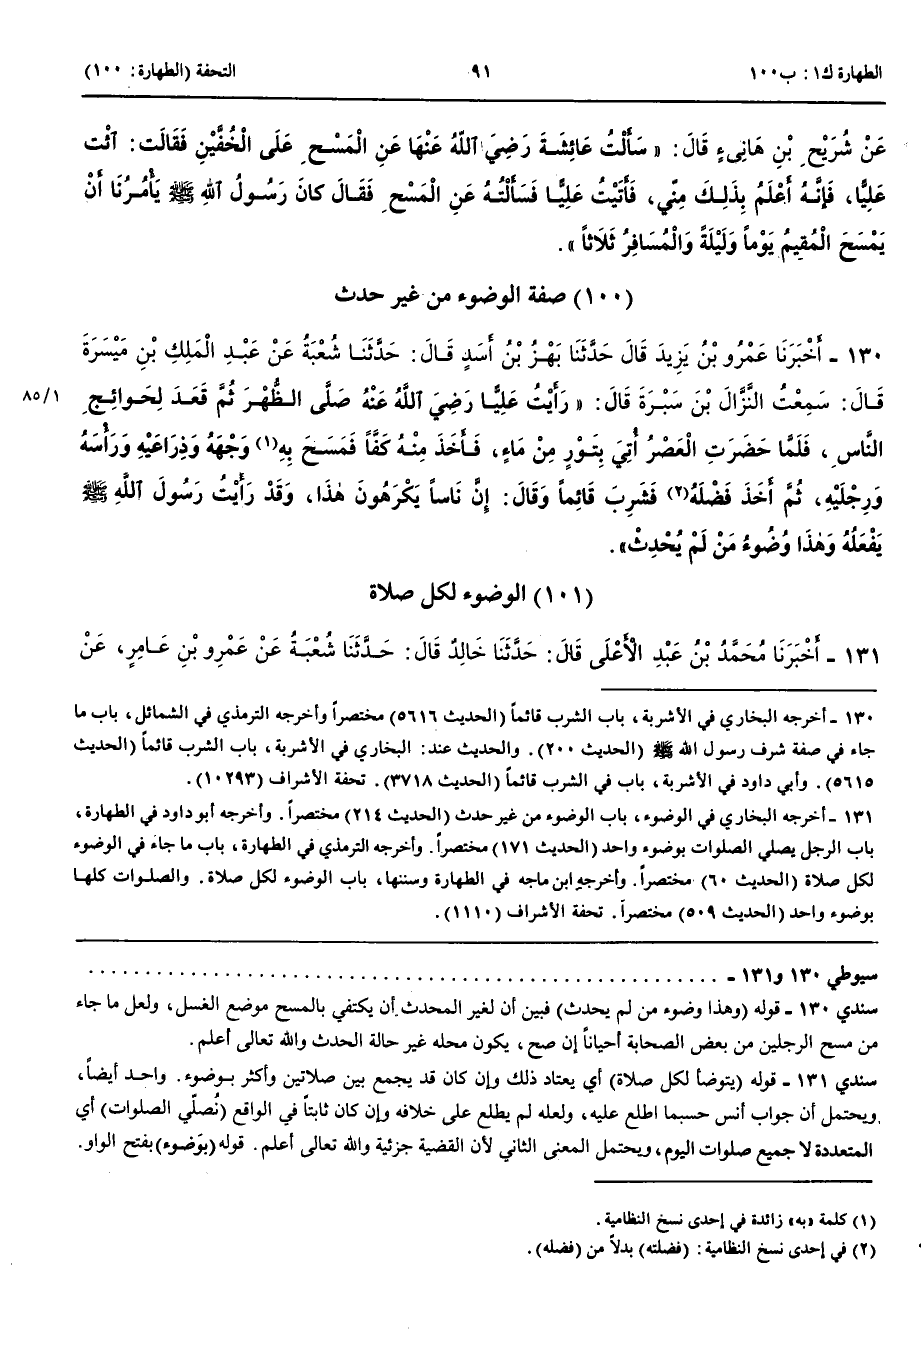 الطهارة ك١: ب١٠٠ ٩١ التحفة (الطهارة: ١٠٠)
عَنْ شُرَيْحِ بْنِ هَانِىءٍ قَالَ: « سَأَلْتُ عَائِشَةَ رَضِيَ ٱللَّهُ عَنْهَا عَنِ الْمَسْحِ عَلَى الْخُفَّيْنِ فَقَالَتْ: ٱئْتِ
عَلِيًّا، فَإِنَّهُ أَعْلَمُ بِذَلِكَ مِنِّي، فَأَتَيْتُ عَلِيًّا فَسَأَلْتُهُ عَنِ الْمَسْحِ فَقَالَ كَانَ رَسُولُ اللهِ ﷺ يَأْمُرُنَا أَنْ
يَمْسَحَ الْمُقِيمُ يَوْماً وَلَيْلَةً وَالْمُسَافِرُ ثَلَاثاً ».
(١٠٠) صفة الوضوء من غير حدث
١٣٠ - أَخْبَرَنَا عَمْرُو بْنُ يَزِيدَ قَالَ حَدَّثَنَا بَهْزُ بْنُ أَسَدٍ قَالَ: حَدَّثَنَا شُعْبَةُ عَنْ عَبْدِ الْمَلِكِ بْنِ مَيْسَرَةَ
قَالَ: سَمِعْتُ النَّزَّالَ بْنَ سَبْرَةَ قَالَ: « رَأَيْتُ عَلِيًّا رَضِيَ ٱللَّهُ عَنْهُ صَلَّى الظُّهْرَ ثُمَّ قَعَدَ لِحَوَائِجِ ٨٥/١
النَّاسِ، فَلَمَّا حَضَرَتِ الْعَصْرُ أُتِيَ بِتَوْرٍ مِنْ مَاءٍ، فَأَخَذَ مِنْهُ كَفًّا فَمَسَحَ بِهِ(١) وَجْهَهُ وَذِرَاعَيْهِ وَرَأْسَهُ
وَرِجْلَيْهِ، ثُمَّ أَخَذَ فَضْلَهُ(٢) فَشَرِبَ قَائِماً وَقَالَ: إِنَّ نَاساً يَكْرَهُونَ هٰذَا، وَقَدْ رَأَيْتُ رَسُولَ ٱللَّهِ ﷺ
يَفْعَلُهُ وَهٰذَا وُضُوءُ مَنْ لَمْ يُحْدِثْ».
(١٠١) الوضوء لكل صلاة
١٣١ - أَخْبَرَنَا مُحَمَّدُ بْنُ عَبْدِ الْأَعْلَى قَالَ: حَدَّثَنَا خَالِدٌ قَالَ: حَدَّثَنَا شُعْبَةُ عَنْ عَمْرِو بْنِ عَامِرٍ، عَنْ
١٣٠ - أخرجه البخاري في الأشربة، باب الشرب قائماً (الحديث ٥٦١٦) مختصراً وأخرجه الترمذي في الشمائل، باب ما
جاء في صفة شرف رسول الله ﷺ (الحديث ٢٠٠). والحديث عند: البخاري في الأشربة، باب الشرب قائماً (الحديث
٥٦١٥). وأبي داود في الأشربة، باب في الشرب قائماً (الحديث ٣٧١٨). تحفة الأشراف (١٠٢٩٣).
١٣١ - أخرجه البخاري في الوضوء، باب الوضوء من غير حدث (الحديث ٢١٤) مختصراً. وأخرجه أبو داود في الطهارة،
باب الرجل يصلي الصلوات بوضوء واحد (الحديث ١٧١) مختصراً. وأخرجه الترمذي في الطهارة، باب ما جاء في الوضوء
لكل صلاة (الحديث ٦٠) مختصراً. وأخرجه ابن ماجه في الطهارة وسننها، باب الوضوء لكل صلاة. والصلوات كلها
بوضوء واحد (الحديث ٥٠٩) مختصراً. تحفة الأشراف (١١١٠).
سيوطي ١٣٠ و١٣١ - ............................................................
سندي ١٣٠ - قوله (وهذا وضوء من لم يحدث) فبين أن لغير المحدث أن يكتفي بالمسح موضع الغسل، ولعل ما جاء
من مسح الرجلين من بعض الصحابة أحياناً إن صح، يكون محله غير حالة الحدث والله تعالى أعلم.
سندي ١٣١ - قوله (يتوضأ لكل صلاة) أي يعتاد ذلك وإن كان قد يجمع بين صلاتين وأكثر بوضوء. واحد أيضاً،
ويحتمل أن جواب أنس حسبما اطلع عليه، ولعله لم يطلع على خلافه وإن كان ثابتاً في الواقع (نُصلّي الصلوات) أي
المتعددة لا جميع صلوات اليوم، ويحتمل المعنى الثاني لأن القضية جزئية والله تعالى أعلم. قوله (بوَضوء) بفتح الواو.
(١) كلمة «به» زائدة في إحدى نسخ النظامية.
(٢) في إحدى نسخ النظامية: (فضلته) بدلاً من (فضله).